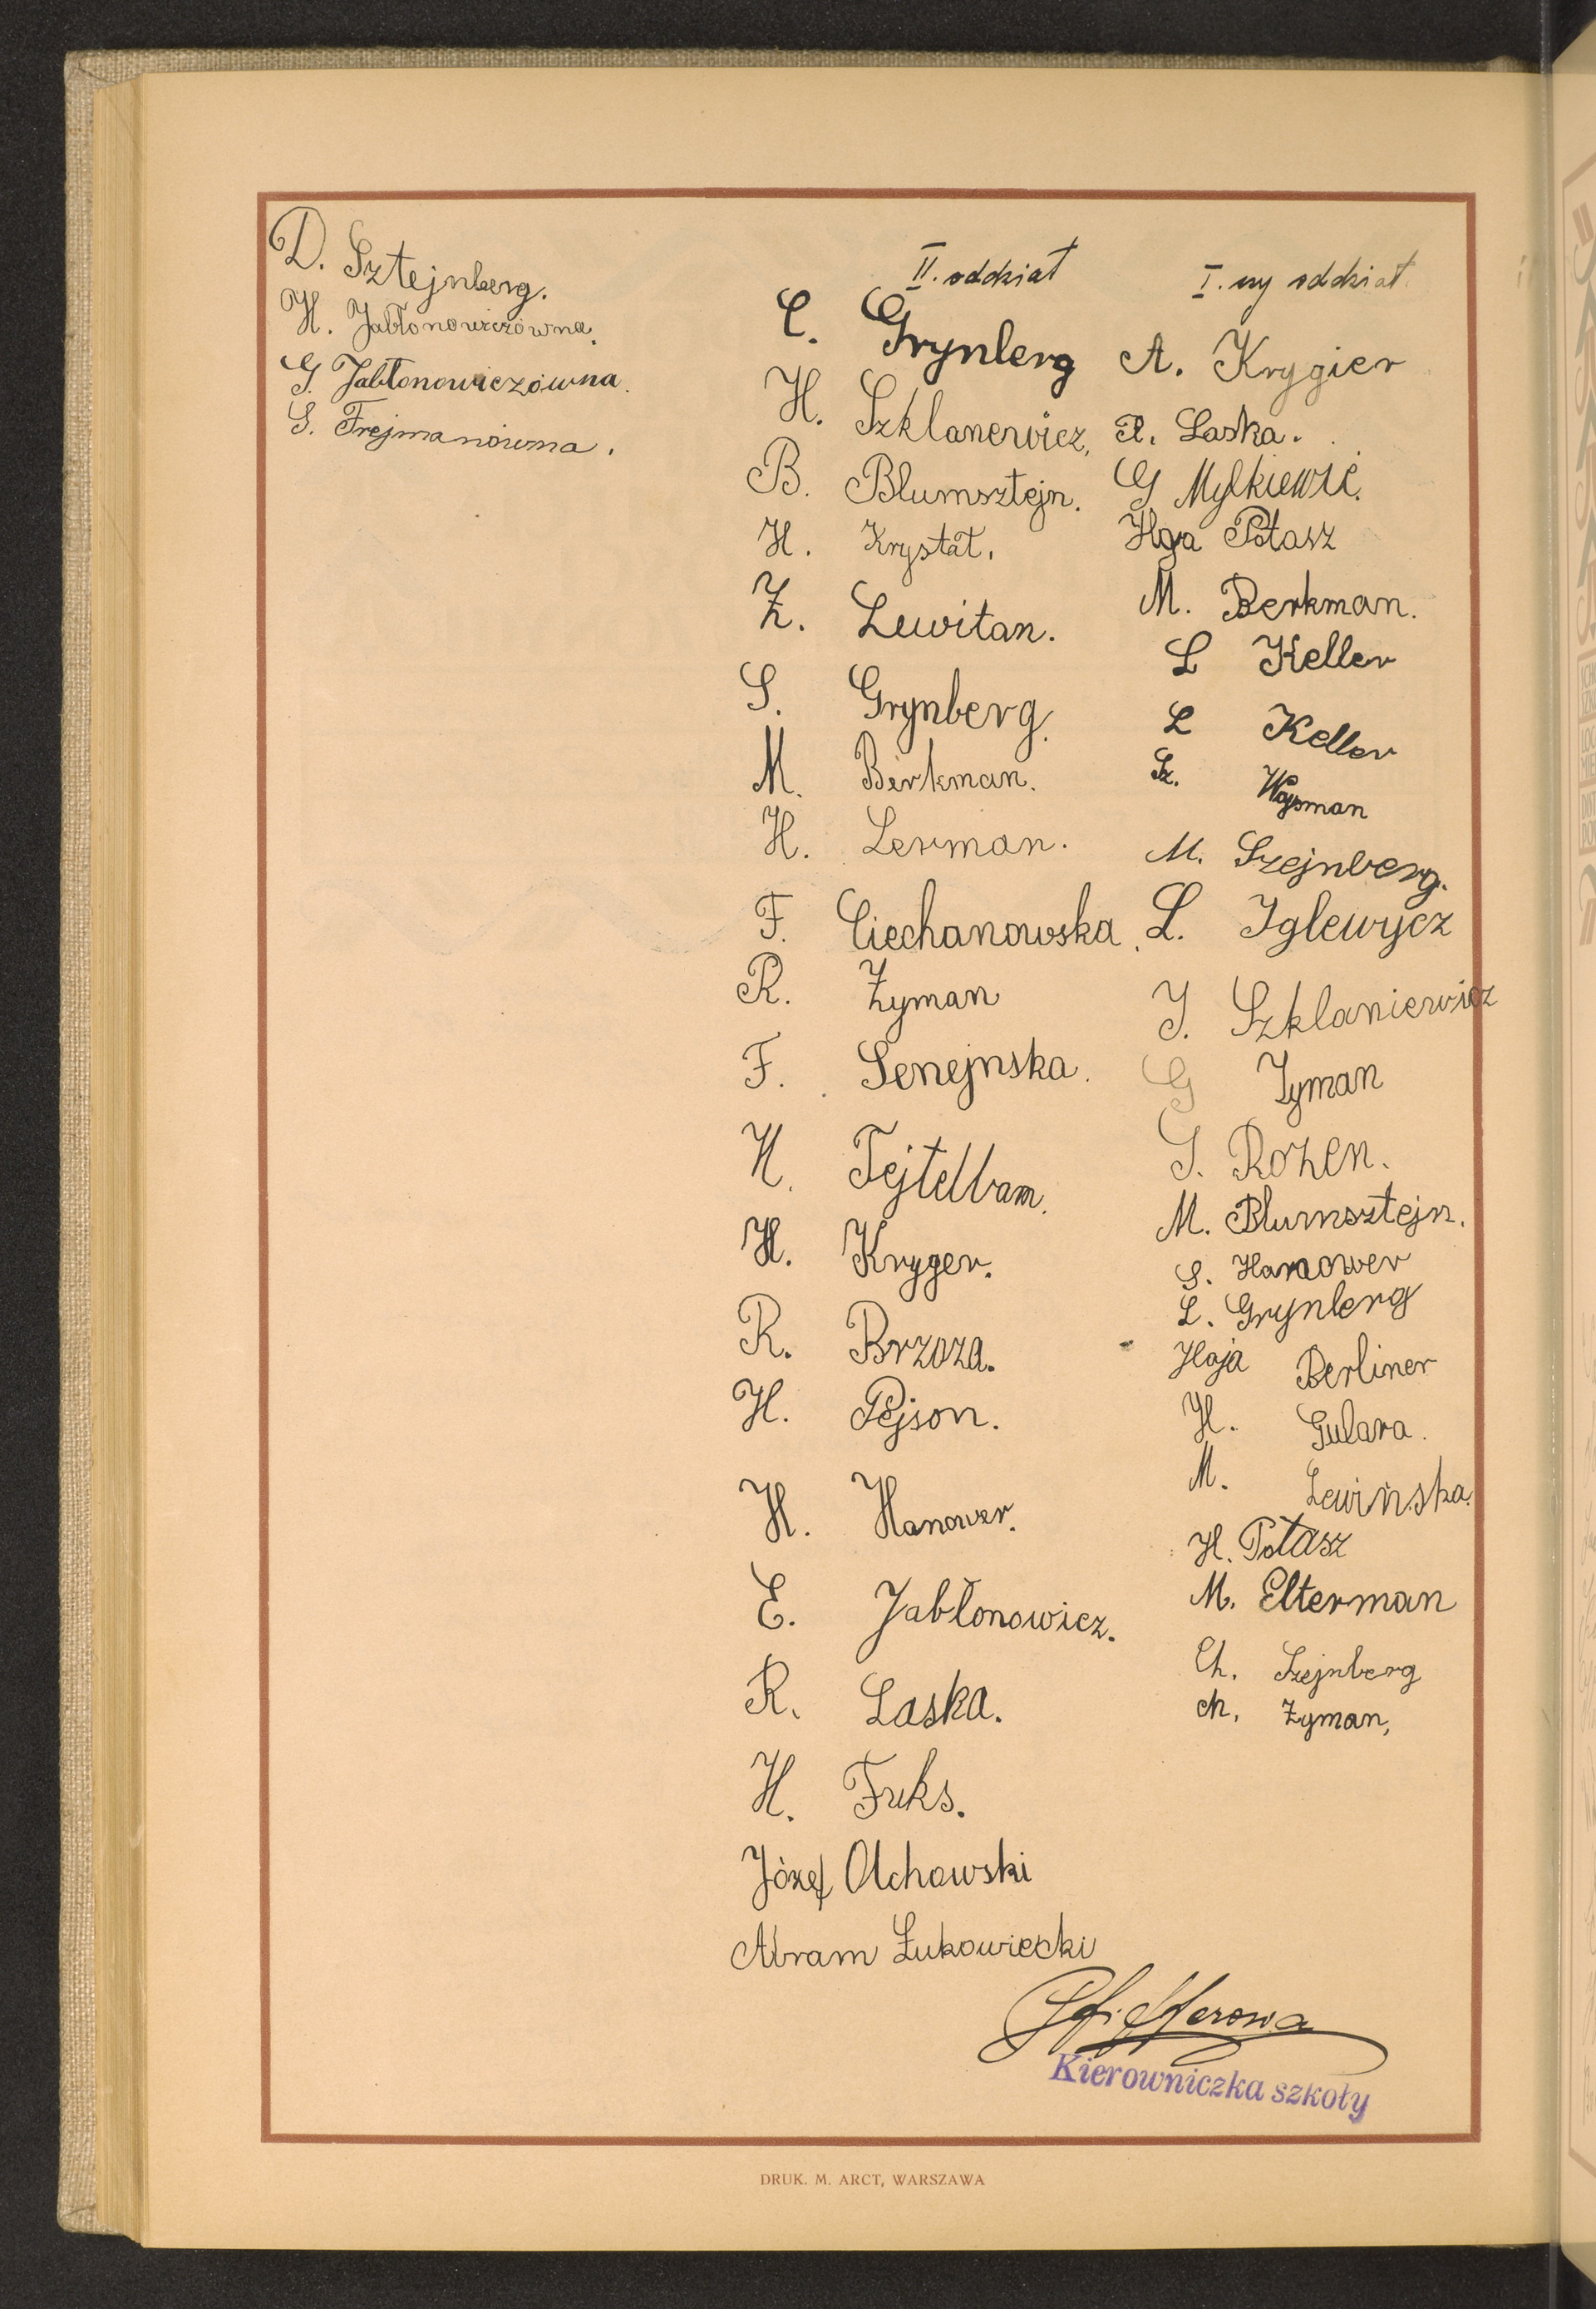 D. Sztejnberg.
H. Jabłonowiczówna.
G. Jabłonowiczówna.
S. Frejmanówna.
II. oddział
C. Grynberg
H. Szklanerwicz,
B. Blumsztejn.
H. Krystał.
Z. Lewitan.
S. Grynberg.
M. Berkman.
H. Lerman.
F. Ciechanowska.
R. Zyman
F. Senejnska.
H. Tejtelbam.
H. Kryger.
R. Brzoza.
H. Pejson.
H. Hanower.
E. Jabłonowicz.
R. Laska.
H. Fuks.
Józef Olchowski
Abram Żukowiecki
I.-szy oddział
A. Krygier
Laska.
G Mylkiewić.
Potasz
M. Berkman.
L Keller
L Keller
Sz. Wajsman
M. Szejnberg.
L. Iglewycz
J. Szklaniewicz
G Zyman
G. Rozen.
M. Blumsztejn.
S. Hanower
L. Grynberg
Haja Berliner
H. Gulara.
M. Lewińska.
H. Potasz
M. Elterman
Ch. Szejnberg
Ch. Zyman,
Pfifferowa
Kierowniczka szkoły
DRUK. M. ARCT, WARSZAWA